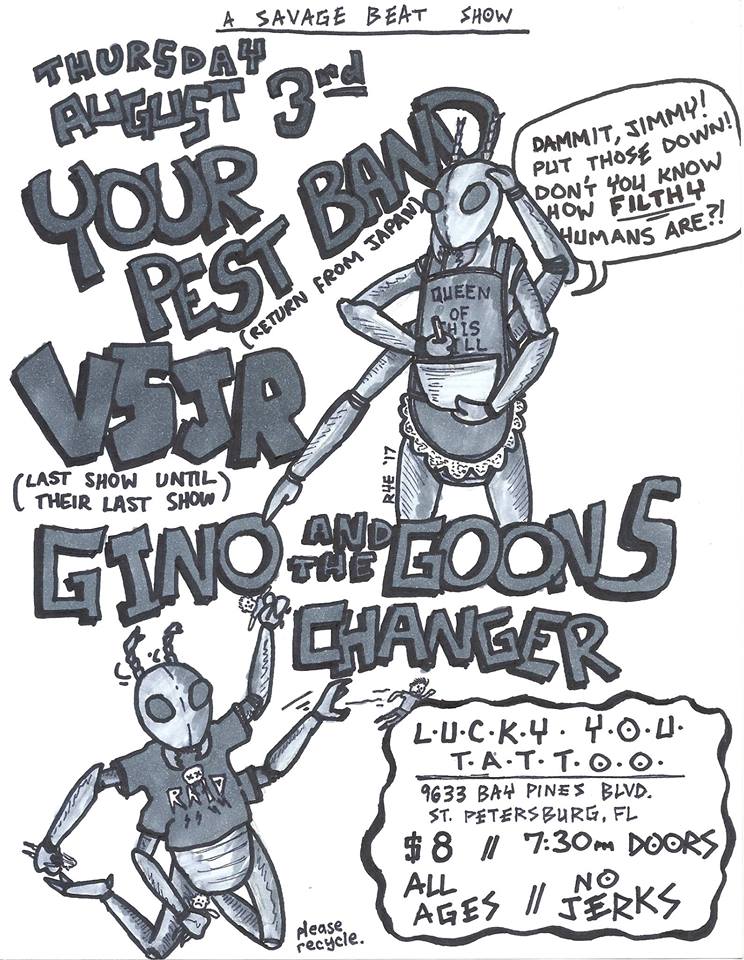 A SAVAGE BEAT SHOW
THURSDAY
AUGUST 3rd
YOUR
PEST BAND
(RETURN FROM JAPAN)
DAMMIT, JIMMY!
PUT THOSE DOWN!
DON'T YOU KNOW
HOW FILTHY
HUMANS ARE?!
QUEEN
OF
THIS
VSJR
(LAST SHOW UNTIL
THEIR LAST SHOW)
RHE '17
GINO AND THE GOONS
CHANGER
RAID
L·U·C·K·Y· Y·O·U·
T·A·T·T·O·O·
9633 BAY PINES BLVD.
ST. PETERSBURG, FL
$8 // 7:30pm DOORS
ALL AGES // NO JERKS
please
recycle.